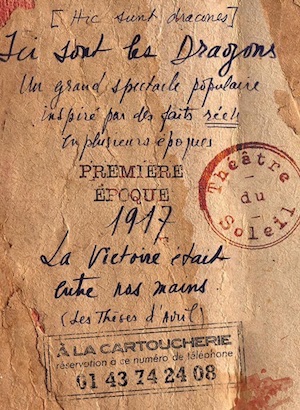 [Hic sunt dracones]
Ici sont les Dragons
Un grand spectacle populaire
inspiré par des faits réels
en plusieurs époques
PREMIERE
ÉPOQUE
1917
La Victoire était
entre nos mains
(Les Thèses d'Avril)
Théâtre
du
Soleil
À LA CARTOUCHERIE
réservation à ce numéro de téléphone
01 43 74 24 08